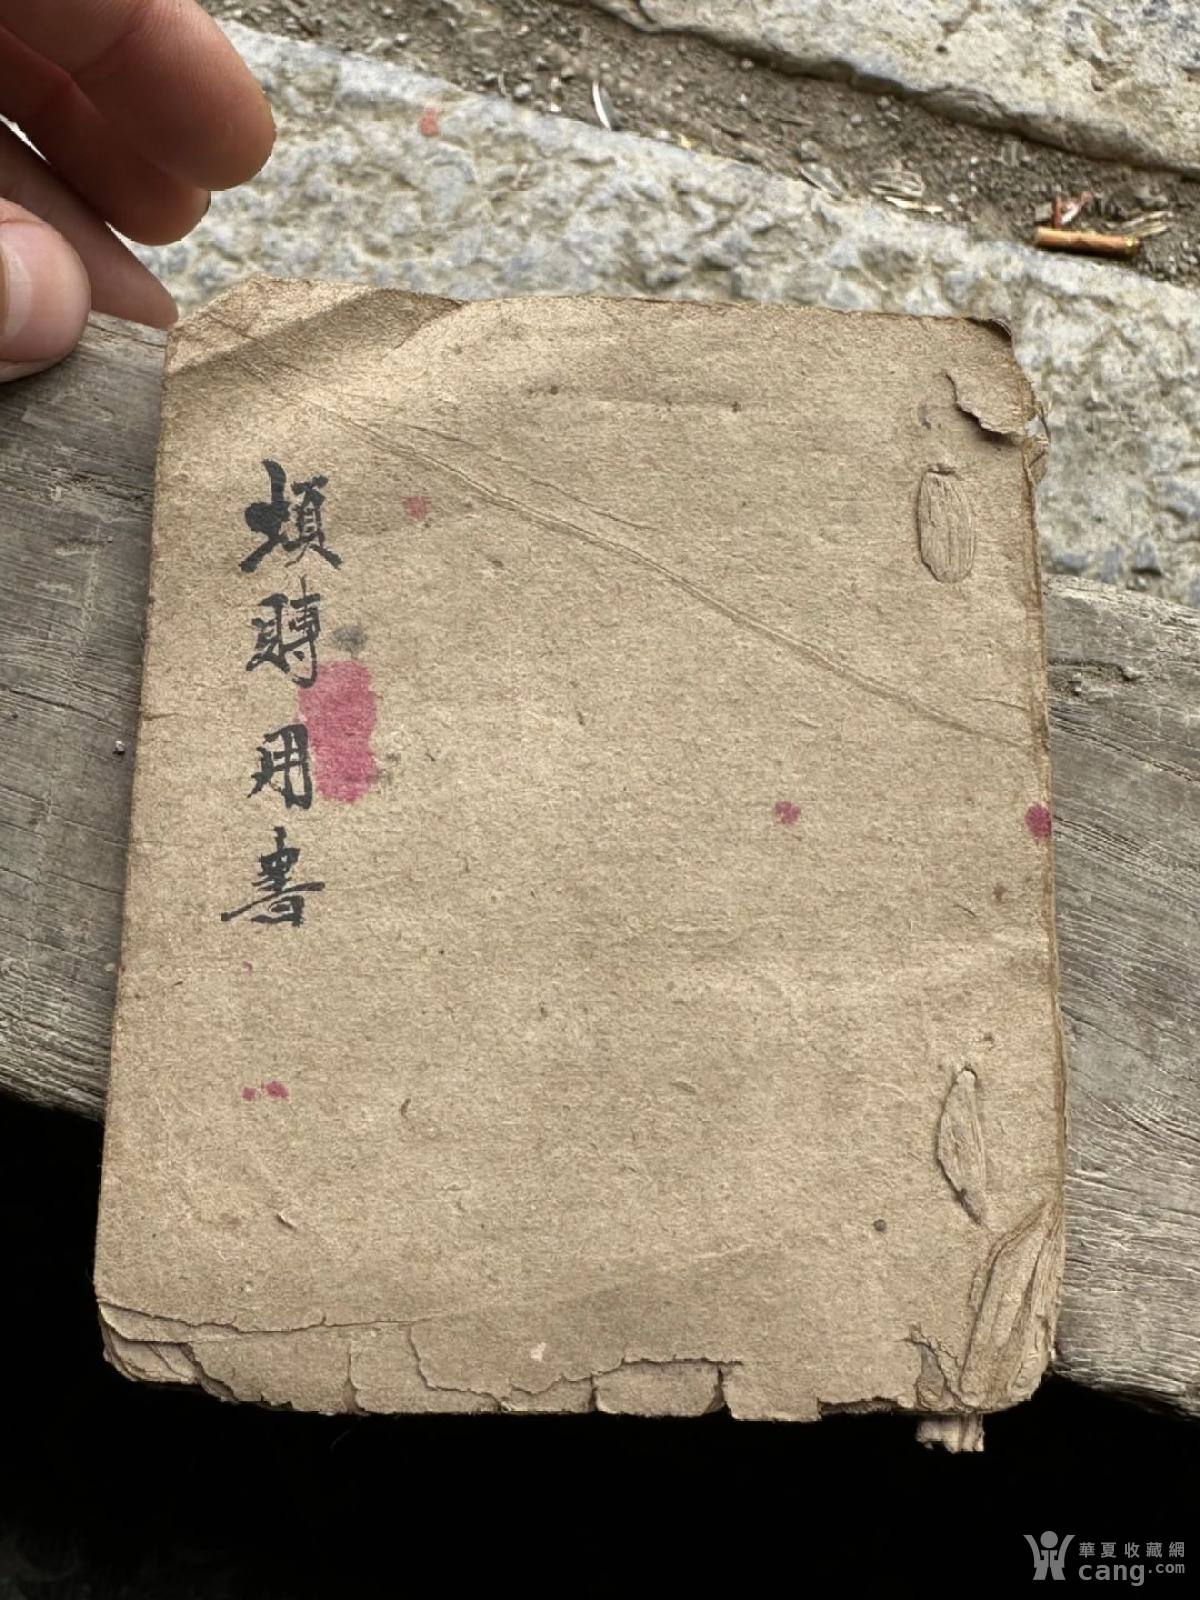 煩聘用書
華夏收藏網
cang.com